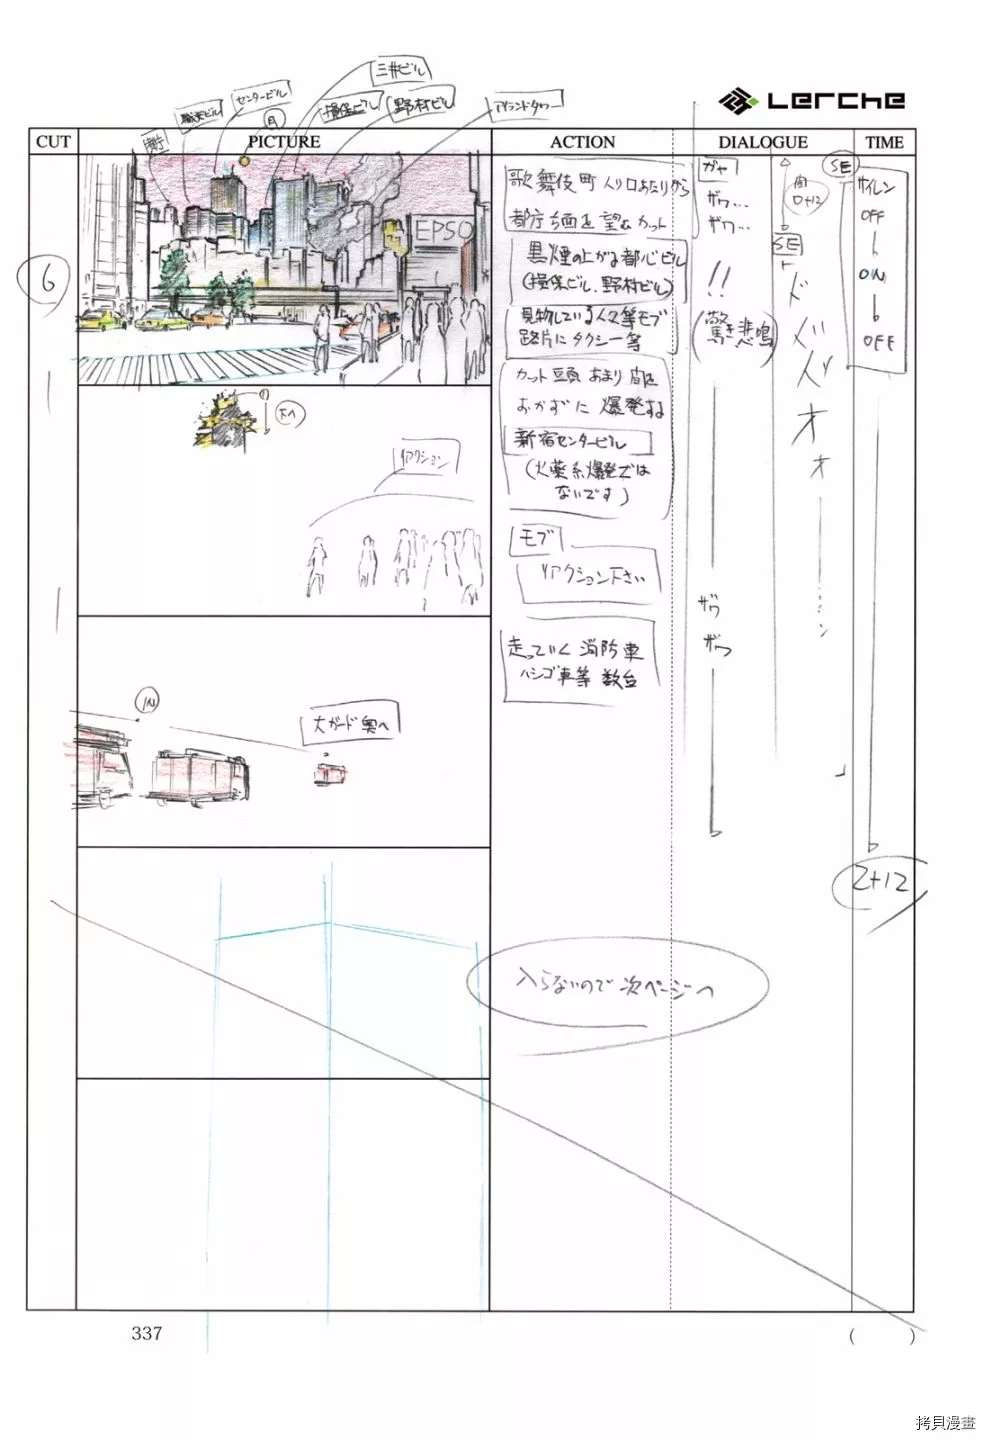 Lerche
三井ビル
センタービル
損保ビル
野村ビル
アイランドタワー
月
CUT
PICTURE
ACTION
DIALOGUE
TIME
6
EPSO
歌舞伎町入り口あたりから
都庁方面を望むカット
黒煙の上がる都心ビル
(損保ビル、野村ビル)
見物している人々等モブ
路片にタクシー等
カット頭 あまり間を
おかずに 爆発する
新宿センタービル
(火薬系爆発では
ないです)
モブ
リアクション下さい
走っていく 消防車
ハシゴ車等 数台
ガヤ
ザワ…
ザワ…
!!
(驚き悲鳴)
ザワ
ザワ
間
0+12
SE
ド
オ
オ
ン
SE
サイレン
OFF
ON
OFF
リアクション
IN
大ガード奥へ
2+12
入らないので次ページへ
337
( )
拷貝漫畫